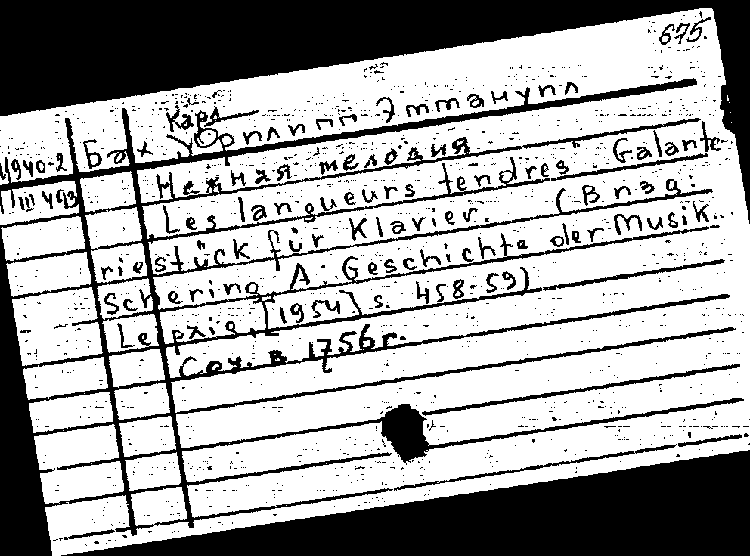 675.
Карл
Бах Филипп Эммануил
Нежная мелодия.
„Les langueurs tendres". Galante-
riestück für Klavier. (В изд:
Schering, A: Geschichte der Musik...
Leipzig, [1954] s. 458-59)
Соч. в 1756 г.